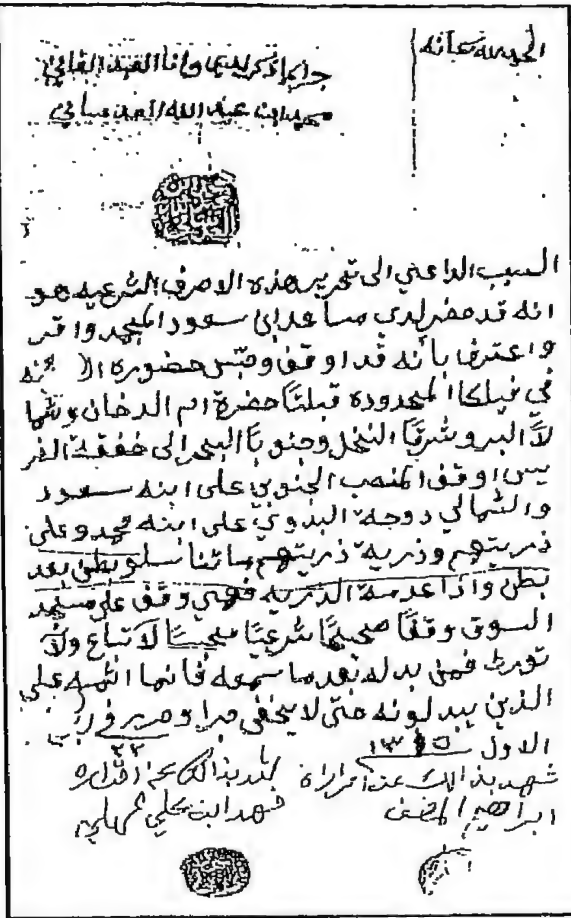 الحمد لله سبحانه
جرا ما ذكر لديما وانا العبد الفاني
محمد ابن عبد الله العدساني
السبب الداعي الى تحرير هذه الاحرف الشرعيه هو
انه قد حضر لدي مساعد ابن سعود المجمد واقر
واعترف بأنه قد اوقف وحبس حضوره
في فيلكا المحدوده قبلتًا حضرة ام الدخان وشما
لاً البر وشرقًا النخل وجنوبًا البحر الى
اوقف المنصب الجنوبي على ابنه سعود
والشمالي دوحة البدوي على ابنه محمد وعلى
ذريتهم وذرية ذريتهم ما تناسلو بطن بعد
بطن واذا عدمة الذريه فهي وقف على مسجد
السوق وقفًا صحيحًا شرعيًا لا تباع ولا
تورث فمن بدله بعد ما سمعه فانما اثمه على
الذين يبدلونه حتى لا يخفى جرا وحرر في ربيع
الاول
شهد بذالك عن اقراره شهد بذالك عن اقراره
ابراهيم المضف فهد ابن علي